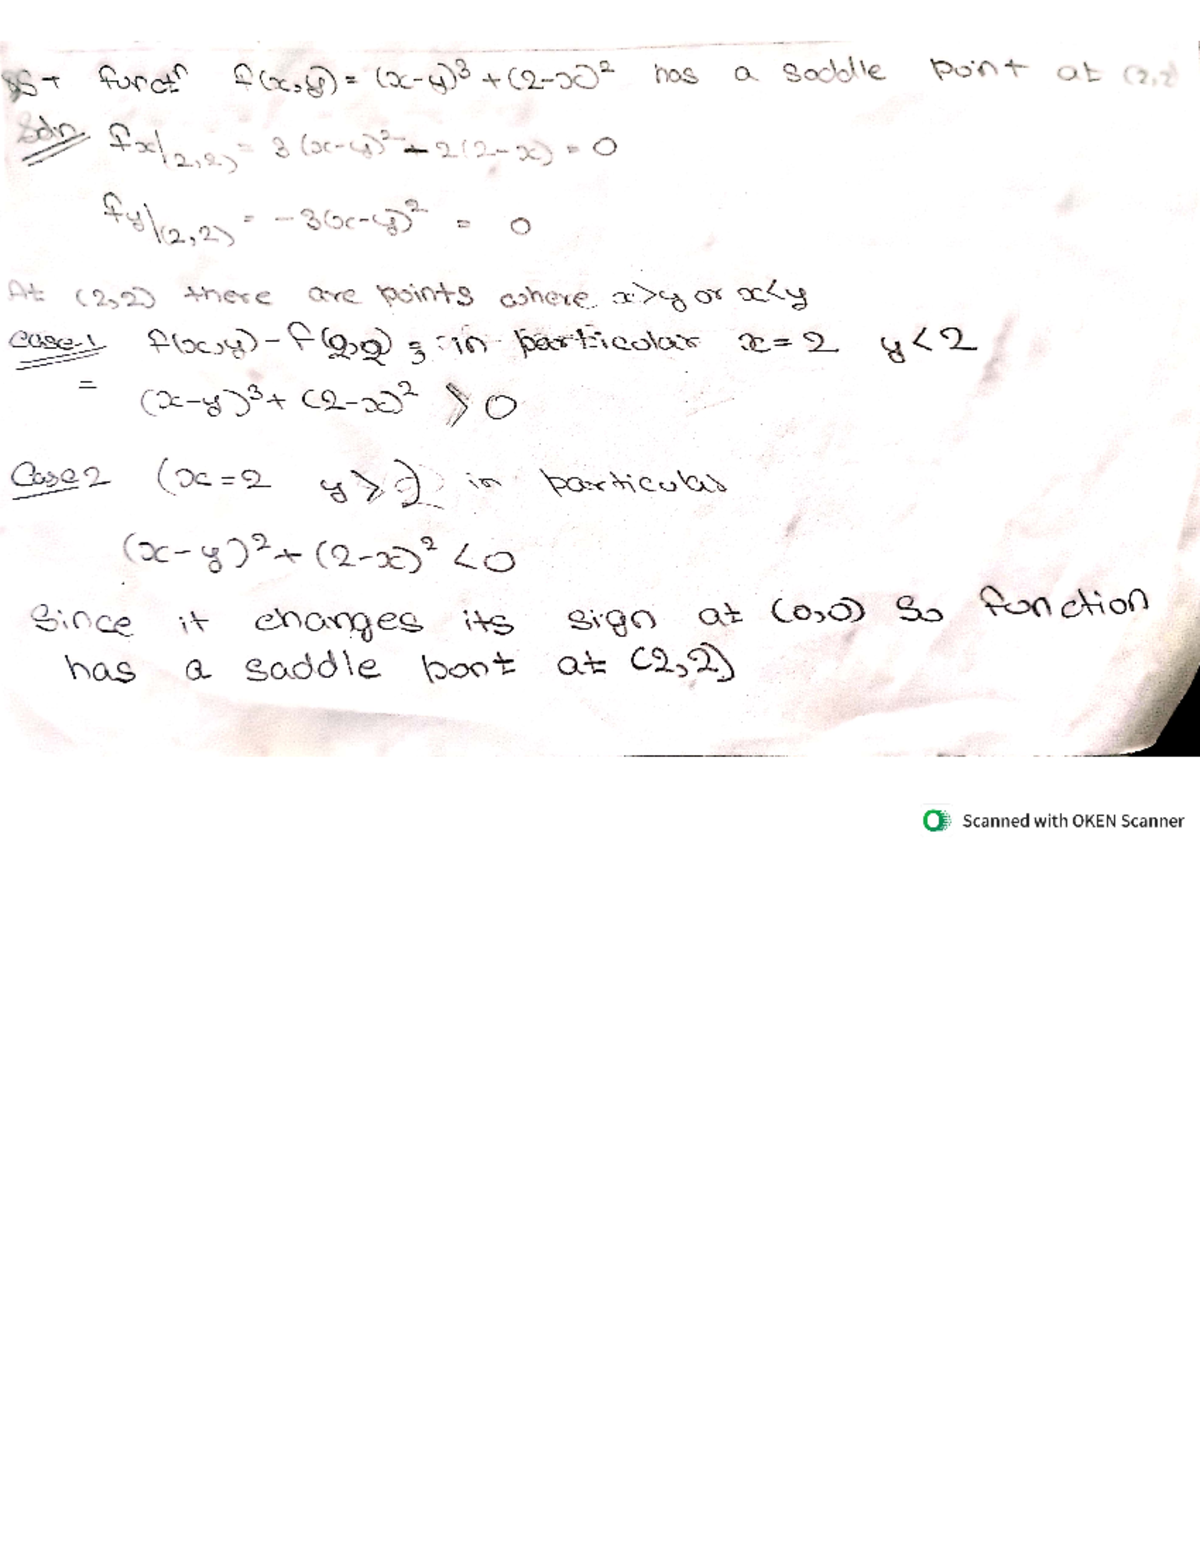 S+ functn f(x,y) = (x-y)³ + (2-x)² has a saddle point at (2,2)
Soln fx|(2,2) = 3(x-y)² - 2(2-x) = 0
fy|(2,2) = -3(x-y)² = 0
At (2,2) there are points where x>y or x<y
Case-1 f(x,y) - f(2,2) ; in particular x=2 y<2
= (x-y)³ + (2-x)² > 0
Case 2 (x=2 y>2) in particular
(x-y)² + (2-x)² < 0
Since it changes its sign at (0,0) So function
has a saddle pont at (2,2)
Scanned with OKEN Scanner